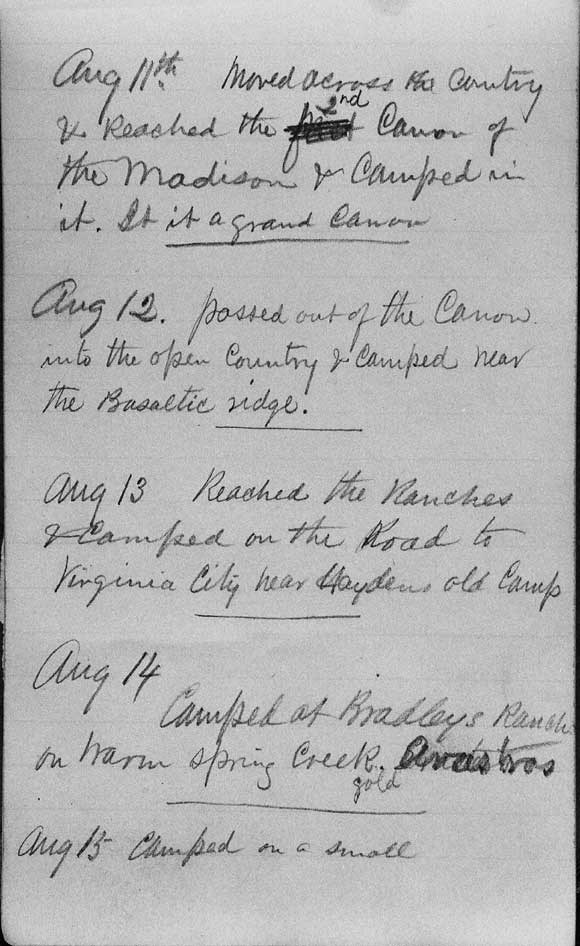 Aug 11th. Moved across the Country
& Reached the 2nd Canon of
the Madison & Camped in
it. It it a grand Canon
Aug 12. passed out of the Canon
into the open Country & Camped near
the Basaltic ridge.
Aug 13 Reached the Ranches
& Camped on the Road to
Virginia City near Haydens old Camp
Aug 14
Camped at Bradleys Ranch
on Warm Spring Creek. Arastras
gold
Aug 15 Camped on a small